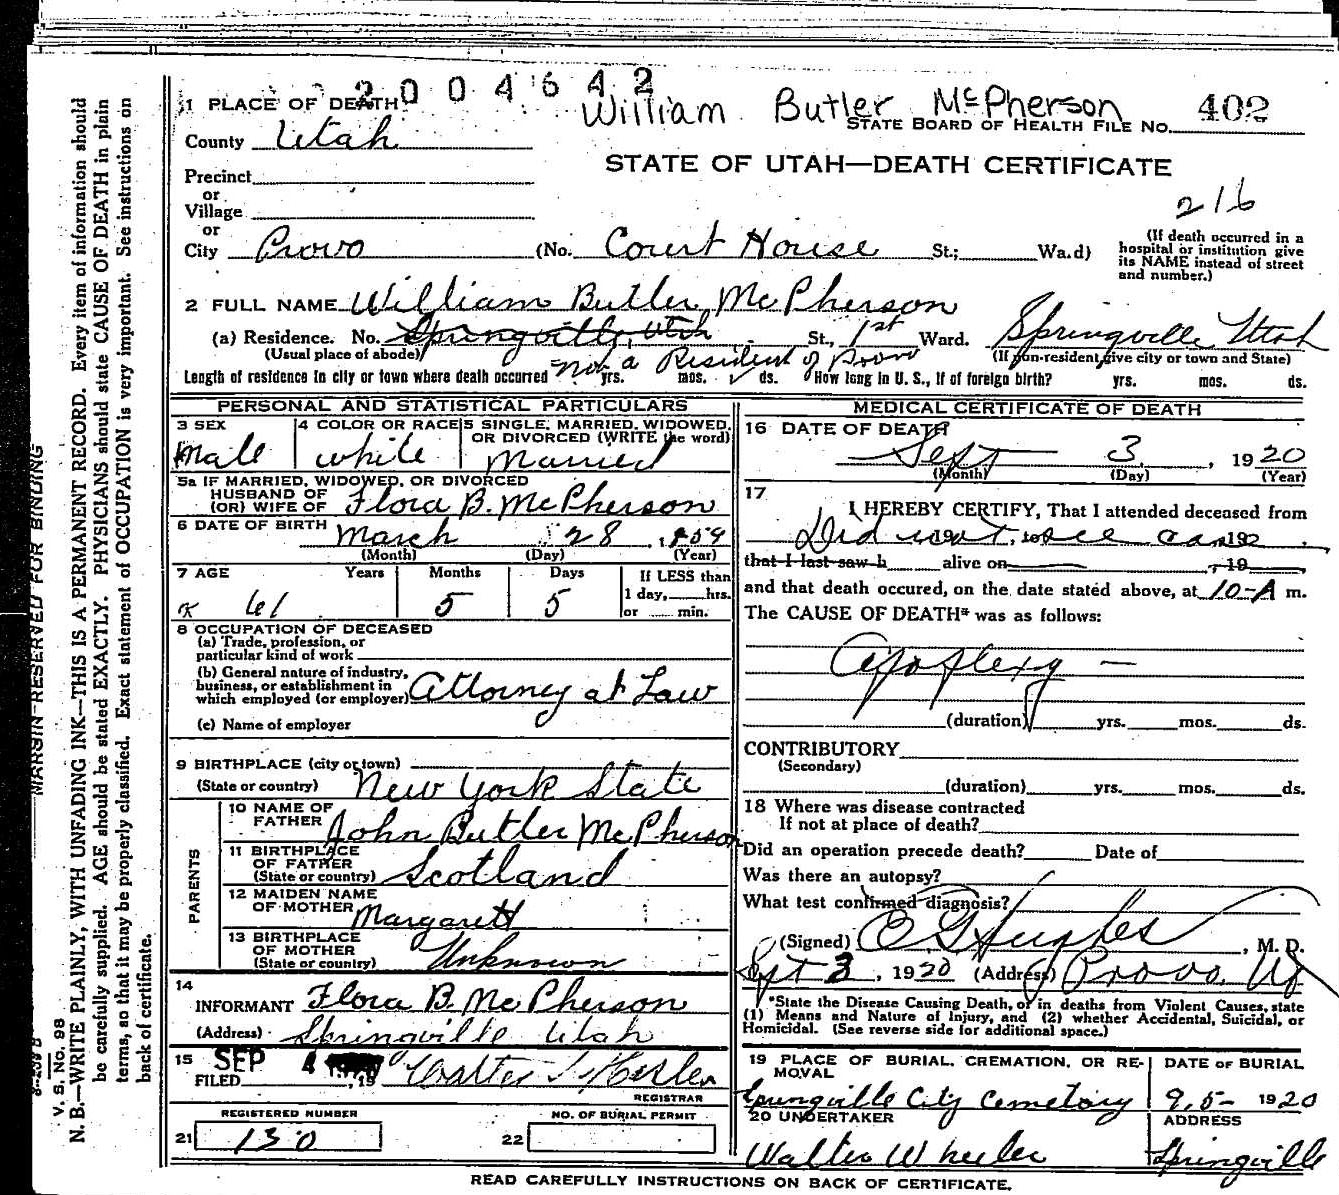 2004642
William Butler McPherson 402
1 PLACE OF DEATH STATE BOARD OF HEALTH FILE No.
County Utah
STATE OF UTAH—DEATH CERTIFICATE
Precinct
or
Village
216
or
City Provo (No. Court House St.; Wa.d)
(If death occurred in a hospital or institution give its NAME instead of street and number.)
2 FULL NAME William Butler McPherson
(a) Residence. No. Springville, Utah St., 1st Ward. Springville Utah
(Usual place of abode) (If non-resident, give city or town and State)
not a Resident of Provo
Length of residence in city or town where death occurred yrs. mos. ds. How long in U. S., if of foreign birth? yrs. mos. ds.
PERSONAL AND STATISTICAL PARTICULARS
3 SEX 4 COLOR OR RACE 5 SINGLE, MARRIED, WIDOWED, OR DIVORCED (WRITE the word)
Male white Married
5a IF MARRIED, WIDOWED, OR DIVORCED
HUSBAND OF
(OR) WIFE OF Flora B. McPherson
6 DATE OF BIRTH March 28, 1859
(Month) (Day) (Year)
7 AGE Years Months Days If LESS than
1 day, hrs.
61 5 5 or min.
8 OCCUPATION OF DECEASED
(a) Trade, profession, or
particular kind of work
(b) General nature of industry,
business, or establishment in
which employed (or employer) Attorney at Law
(c) Name of employer
9 BIRTHPLACE (city or town)
(State or country) New York State
PARENTS
10 NAME OF
FATHER John Butler McPherson
11 BIRTHPLACE
OF FATHER
(State or country) Scotland
12 MAIDEN NAME
OF MOTHER Margarett
13 BIRTHPLACE
OF MOTHER
(State or country) Unknown
14
INFORMANT Flora B. McPherson
(Address) Springville Utah
15 SEP 4
FILED , 19 Walter
REGISTRAR
REGISTERED NUMBER NO. OF BURIAL PERMIT
21 130 22
MEDICAL CERTIFICATE OF DEATH
16 DATE OF DEATH
Sept 3, 1920
(Month) (Day) (Year)
17
I HEREBY CERTIFY, That I attended deceased from
Did not see case
that I last saw h alive on , 19
and that death occured, on the date stated above, at 10-A m.
The CAUSE OF DEATH* was as follows:
Apoplexy —
(duration) yrs. mos. ds.
CONTRIBUTORY
(Secondary)
(duration) yrs. mos. ds.
18 Where was disease contracted
If not at place of death?
Did an operation precede death? Date of
Was there an autopsy?
What test confirmed diagnosis?
(Signed) Hughes, M. D.
Sept 3, 1920 (Address) Provo, Ut
*State the Disease Causing Death, or in deaths from Violent Causes, state
(1) Means and Nature of Injury, and (2) whether Accidental, Suicidal, or
Homicidal. (See reverse side for additional space.)
19 PLACE OF BURIAL, CREMATION, OR RE- DATE OF BURIAL
MOVAL
Springville City Cemetory 9-5- 1920
20 UNDERTAKER ADDRESS
Walter Wheeler Springville
READ CAREFULLY INSTRUCTIONS ON BACK OF CERTIFICATE.
MARGIN RESERVED FOR BINDING
V. S. No. 98
N. B.—WRITE PLAINLY, WITH UNFADING INK—THIS IS A PERMANENT RECORD. Every item of information should
be carefully supplied. AGE should be stated EXACTLY. PHYSICIANS should state CAUSE OF DEATH in plain
terms, so that it may be properly classified. Exact statement of OCCUPATION is very important. See instructions on
back of certificate.